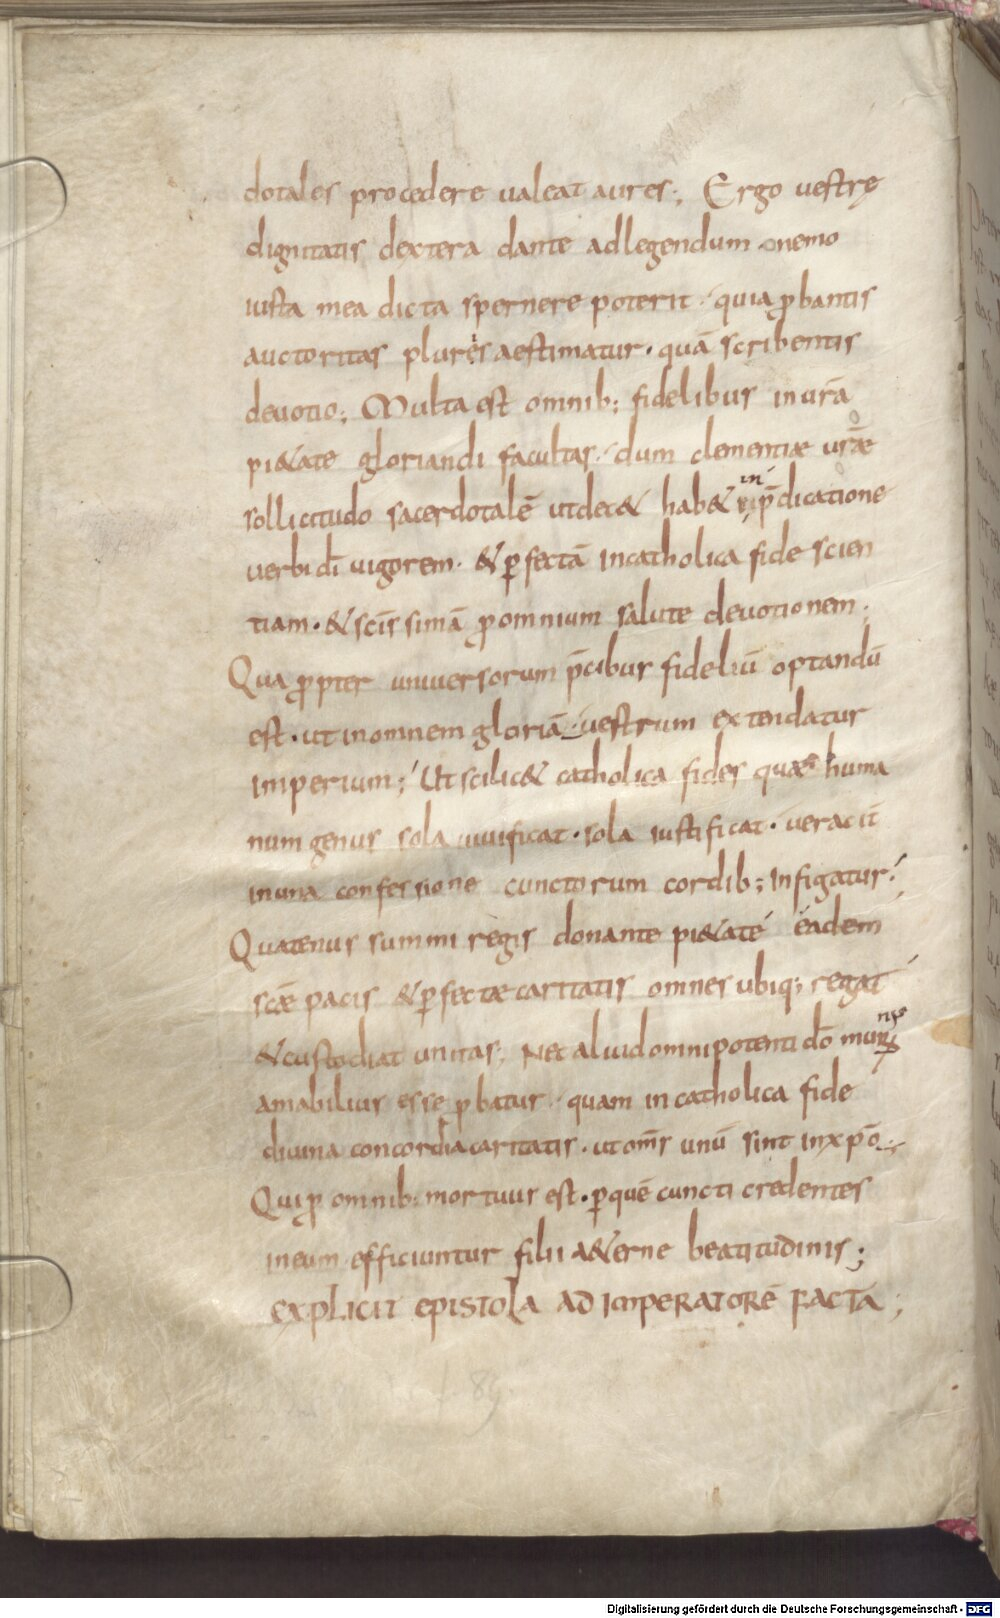 dotales procedere valeat aures; Ergo vestrę
dignitatis dextera dante adlegendum nemo
iusta mea dicta spernere poterit · quia ꝓbantis
auctoritas plures aestimatur · quā scribentis
devotio; Multa est omnib; fidelibus in urā
pi&ate gloriandi facultas · dum clementiæ uræ
sollicitudo sacerdotalē utdec& hab& in p̄dicatione
verbi dī vigorem · & ꝑfectā incatholica fide scien
tiam · & scīssimā ꝓ omnium salute devotionem ;
Qua ꝓpter universorum p̄cibus fideliū optandū
est · ut inomnem gloriā · vestrum extendatur
imperium; Ut scilic& catholica fides quae huma
num genus sola vivificat · sola iustificat · veracit̄
in una confessione cunctorum cordib; infigatur ;
Quatenus summi regis donante pi&ate eadem
scæ pacis & ꝑfectæ caritatis omnes ubiq; regat
& custodiat unitas; Nec aliud omnipotenti dō munꝰ
amabilius esse ꝓbatur · quam in catholica fide
divina concordia caritatis · ut om̄s unū sint in xp̄o ;
Qui ꝓ omnib; mortuus est · ꝑ quē cuncti credentes
in eum efficiuntur filii a&erne beatitudinis;
EXPLICIT EPISTOLA AD IMPERATORĒ FACTA ;
89
Digitalisierung gefördert durch die Deutsche Forschungsgemeinschaft - DFG